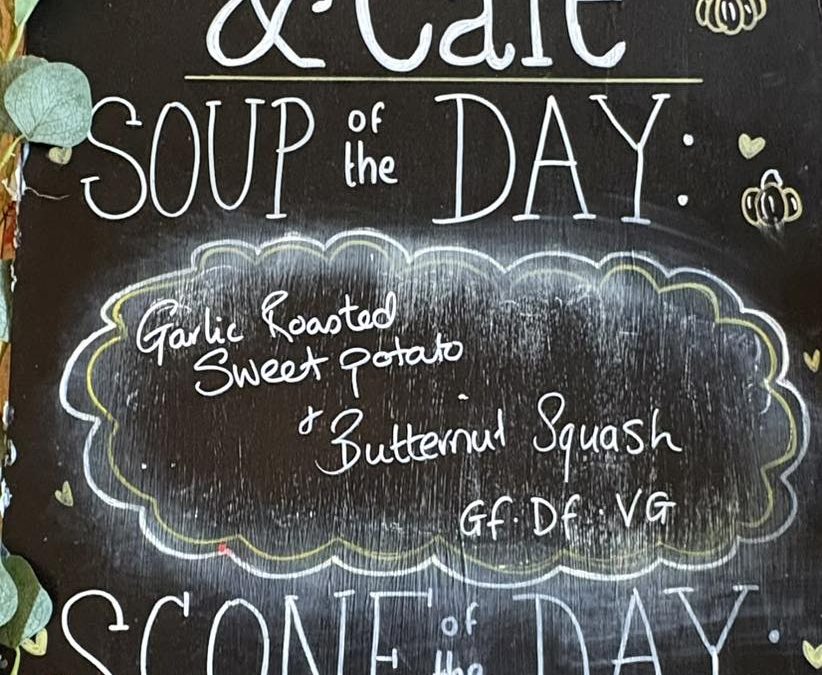 & Cafe
SOUP of the DAY:
Garlic Roasted
Sweet potato
+ Butternut Squash
Gf. Df. VG
SCONE of the DAY: